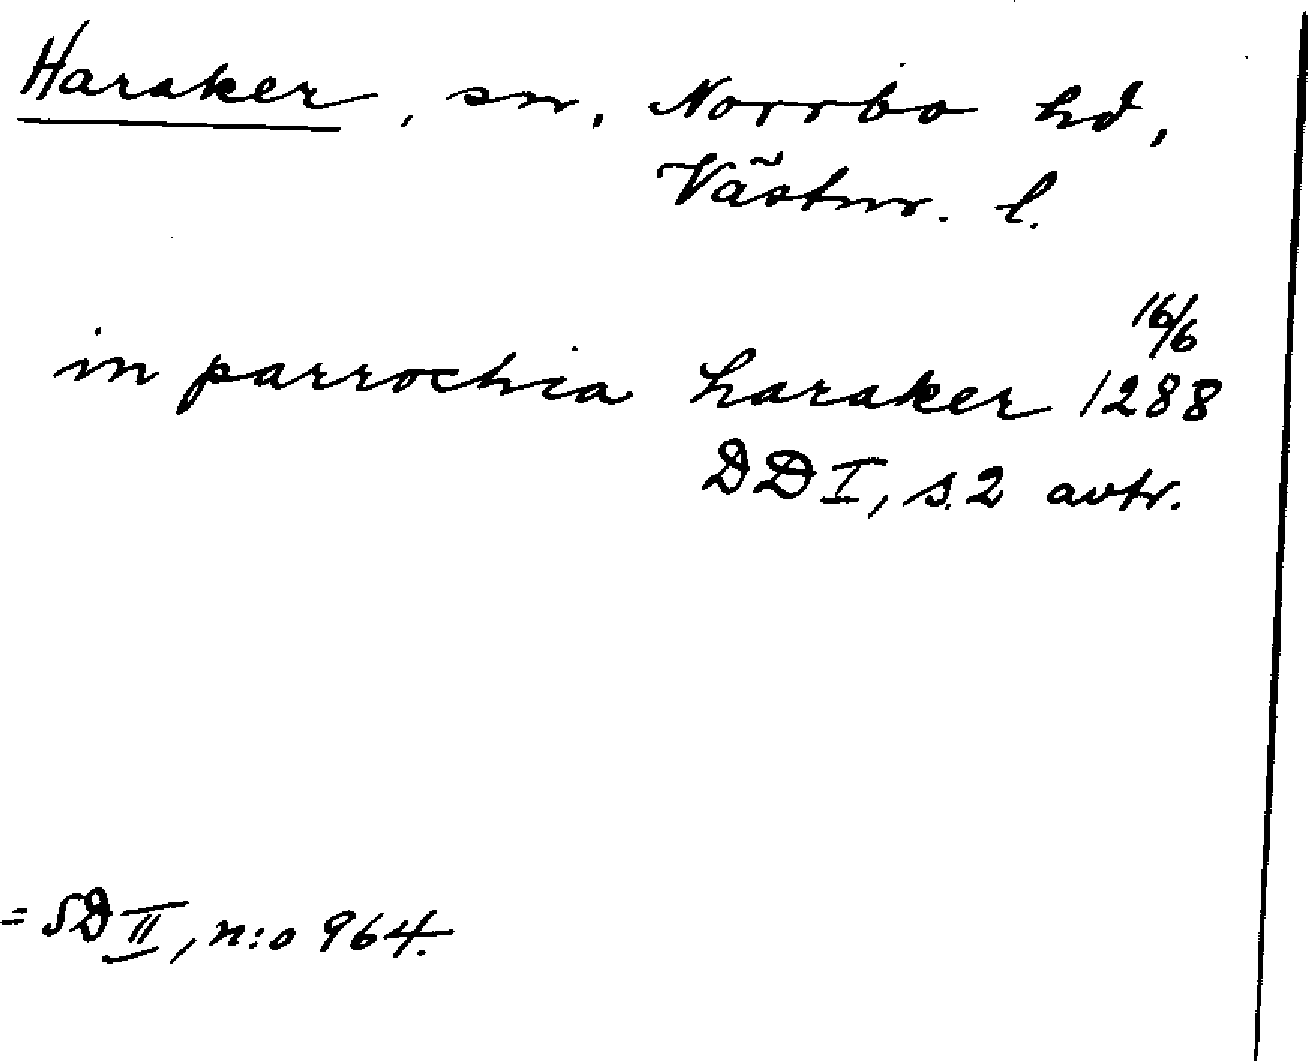 Haraker, sn, Norrbo hd,
Västm. l.
in parrochia haraker 16/6 1288
DD I, s. 2 avtr.
= SD II, n:o 964.